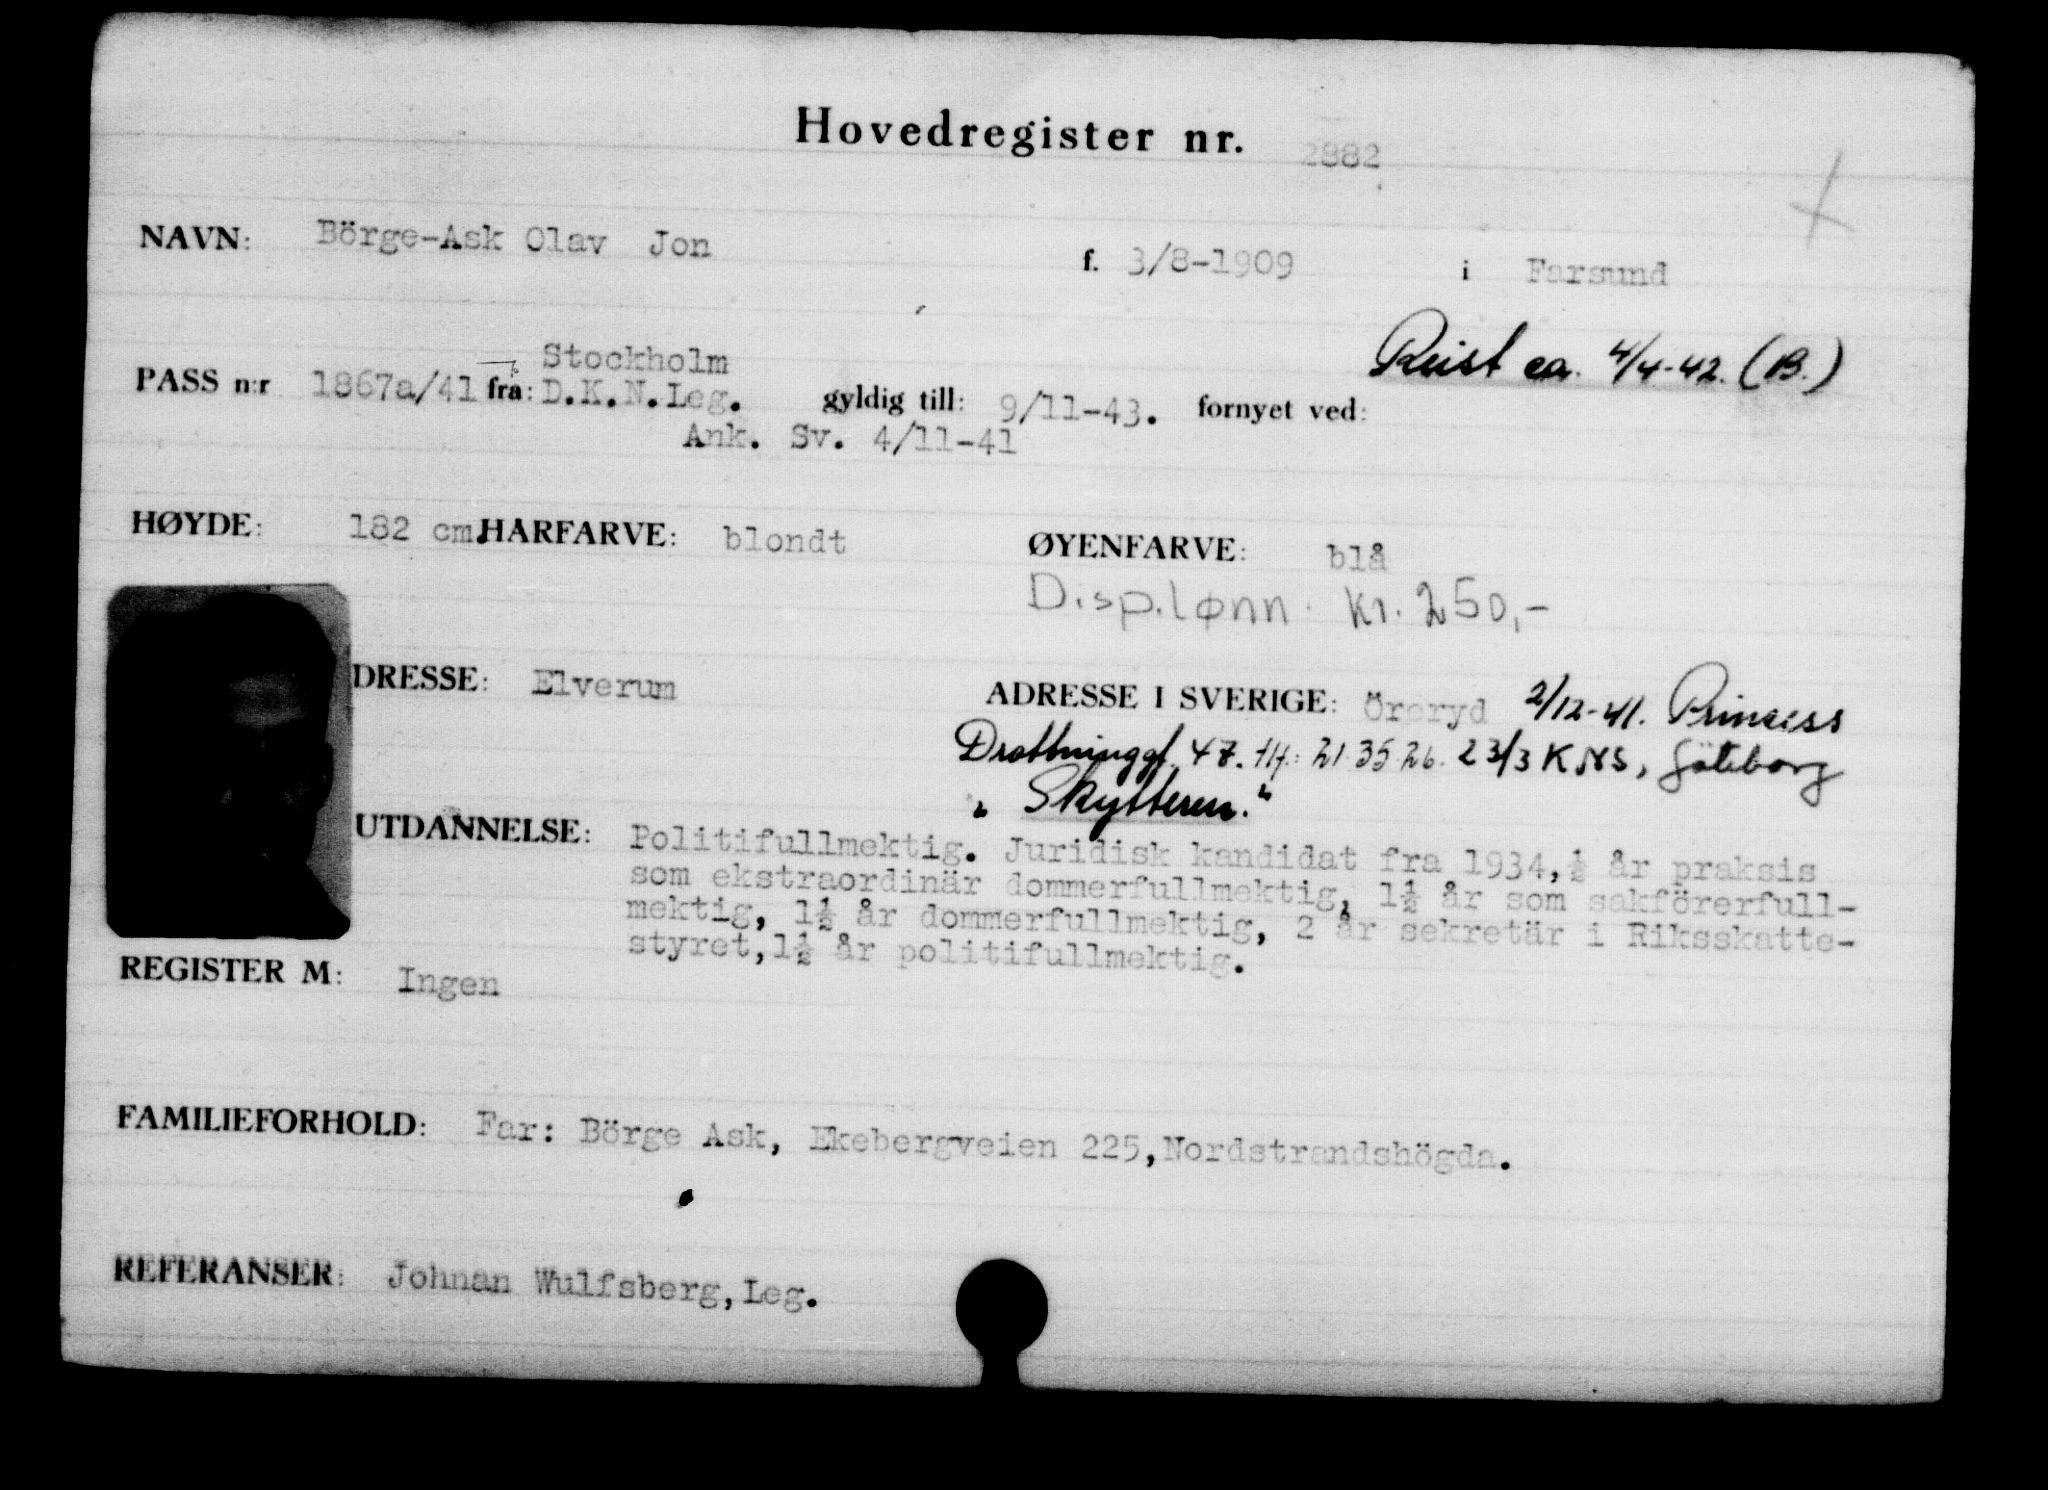 Hovedregister nr. 2882
NAVN: Börge-Ask Olav Jon f. 3/8-1909 i Farsund
Reist ca. 4/4-42. (B.)
Stockholm
PASS n:r 1867a/41 fra: D.K.N.Leg. gyldig till: 9/11-43. fornyet ved:
Ank. Sv. 4/11-41
HØYDE: 182 cm. HARFARVE: blondt ØYENFARVE: blå
Disp.lønn. Kr. 250,-
DRESSE: Elverum ADRESSE I SVERIGE: Öreryd 2/12-41. Princess
Drottninggt. 47. tlf.: 21 35 26. 23/3 KNS, Göteborg
"Skytteren."
UTDANNELSE: Politifullmektig. Juridisk kandidat fra 1934, ½ år praksis
som ekstraordinär dommerfullmektig, 1½ år som sakförerfull-
mektig, 1½ år dommerfullmektig, 2 år sekretär i Riksskatte-
styret, 1½ år politifullmektig.
REGISTER M: Ingen
FAMILIEFORHOLD: Far: Börge Ask, Ekebergveien 225, Nordstrandshögda.
REFERANSER: Johnan Wulfsberg, Leg.